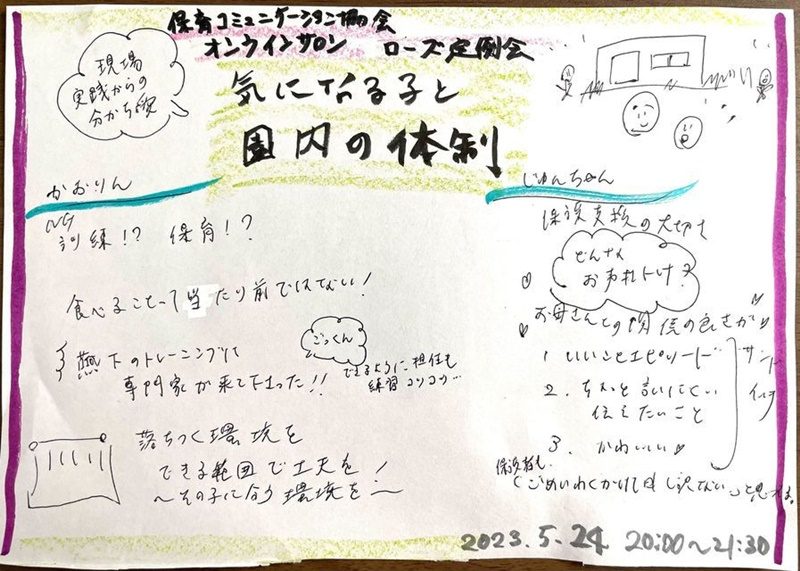 保育コミュニケーション協会
オンラインサロン ローズ定例会
現場
実践からの
分かち合い
気になる子と
園内の体制
かおりん
訓練!? 保育!?
食べることって当たり前ではない!
嚥下のトレーニングは
専門家が来て下さった!!
ごっくん
できるように担任も
練習コツコツ…
落ちつく環境を
できる範囲で工夫を!
〜その子に合う環境を〜
じゅんちゃん
保護者支援の大切さ
どんな
お声かけ?
お母さんとの関係の良さが
1 いいことエピソード
2. ちょっと言いにくい
伝えたいこと
3. かわいい
サンド
イッチ
保護者も
「ごめいわくかけて申し訳ない」と思ってる。
2023.5.24 20:00〜21:30